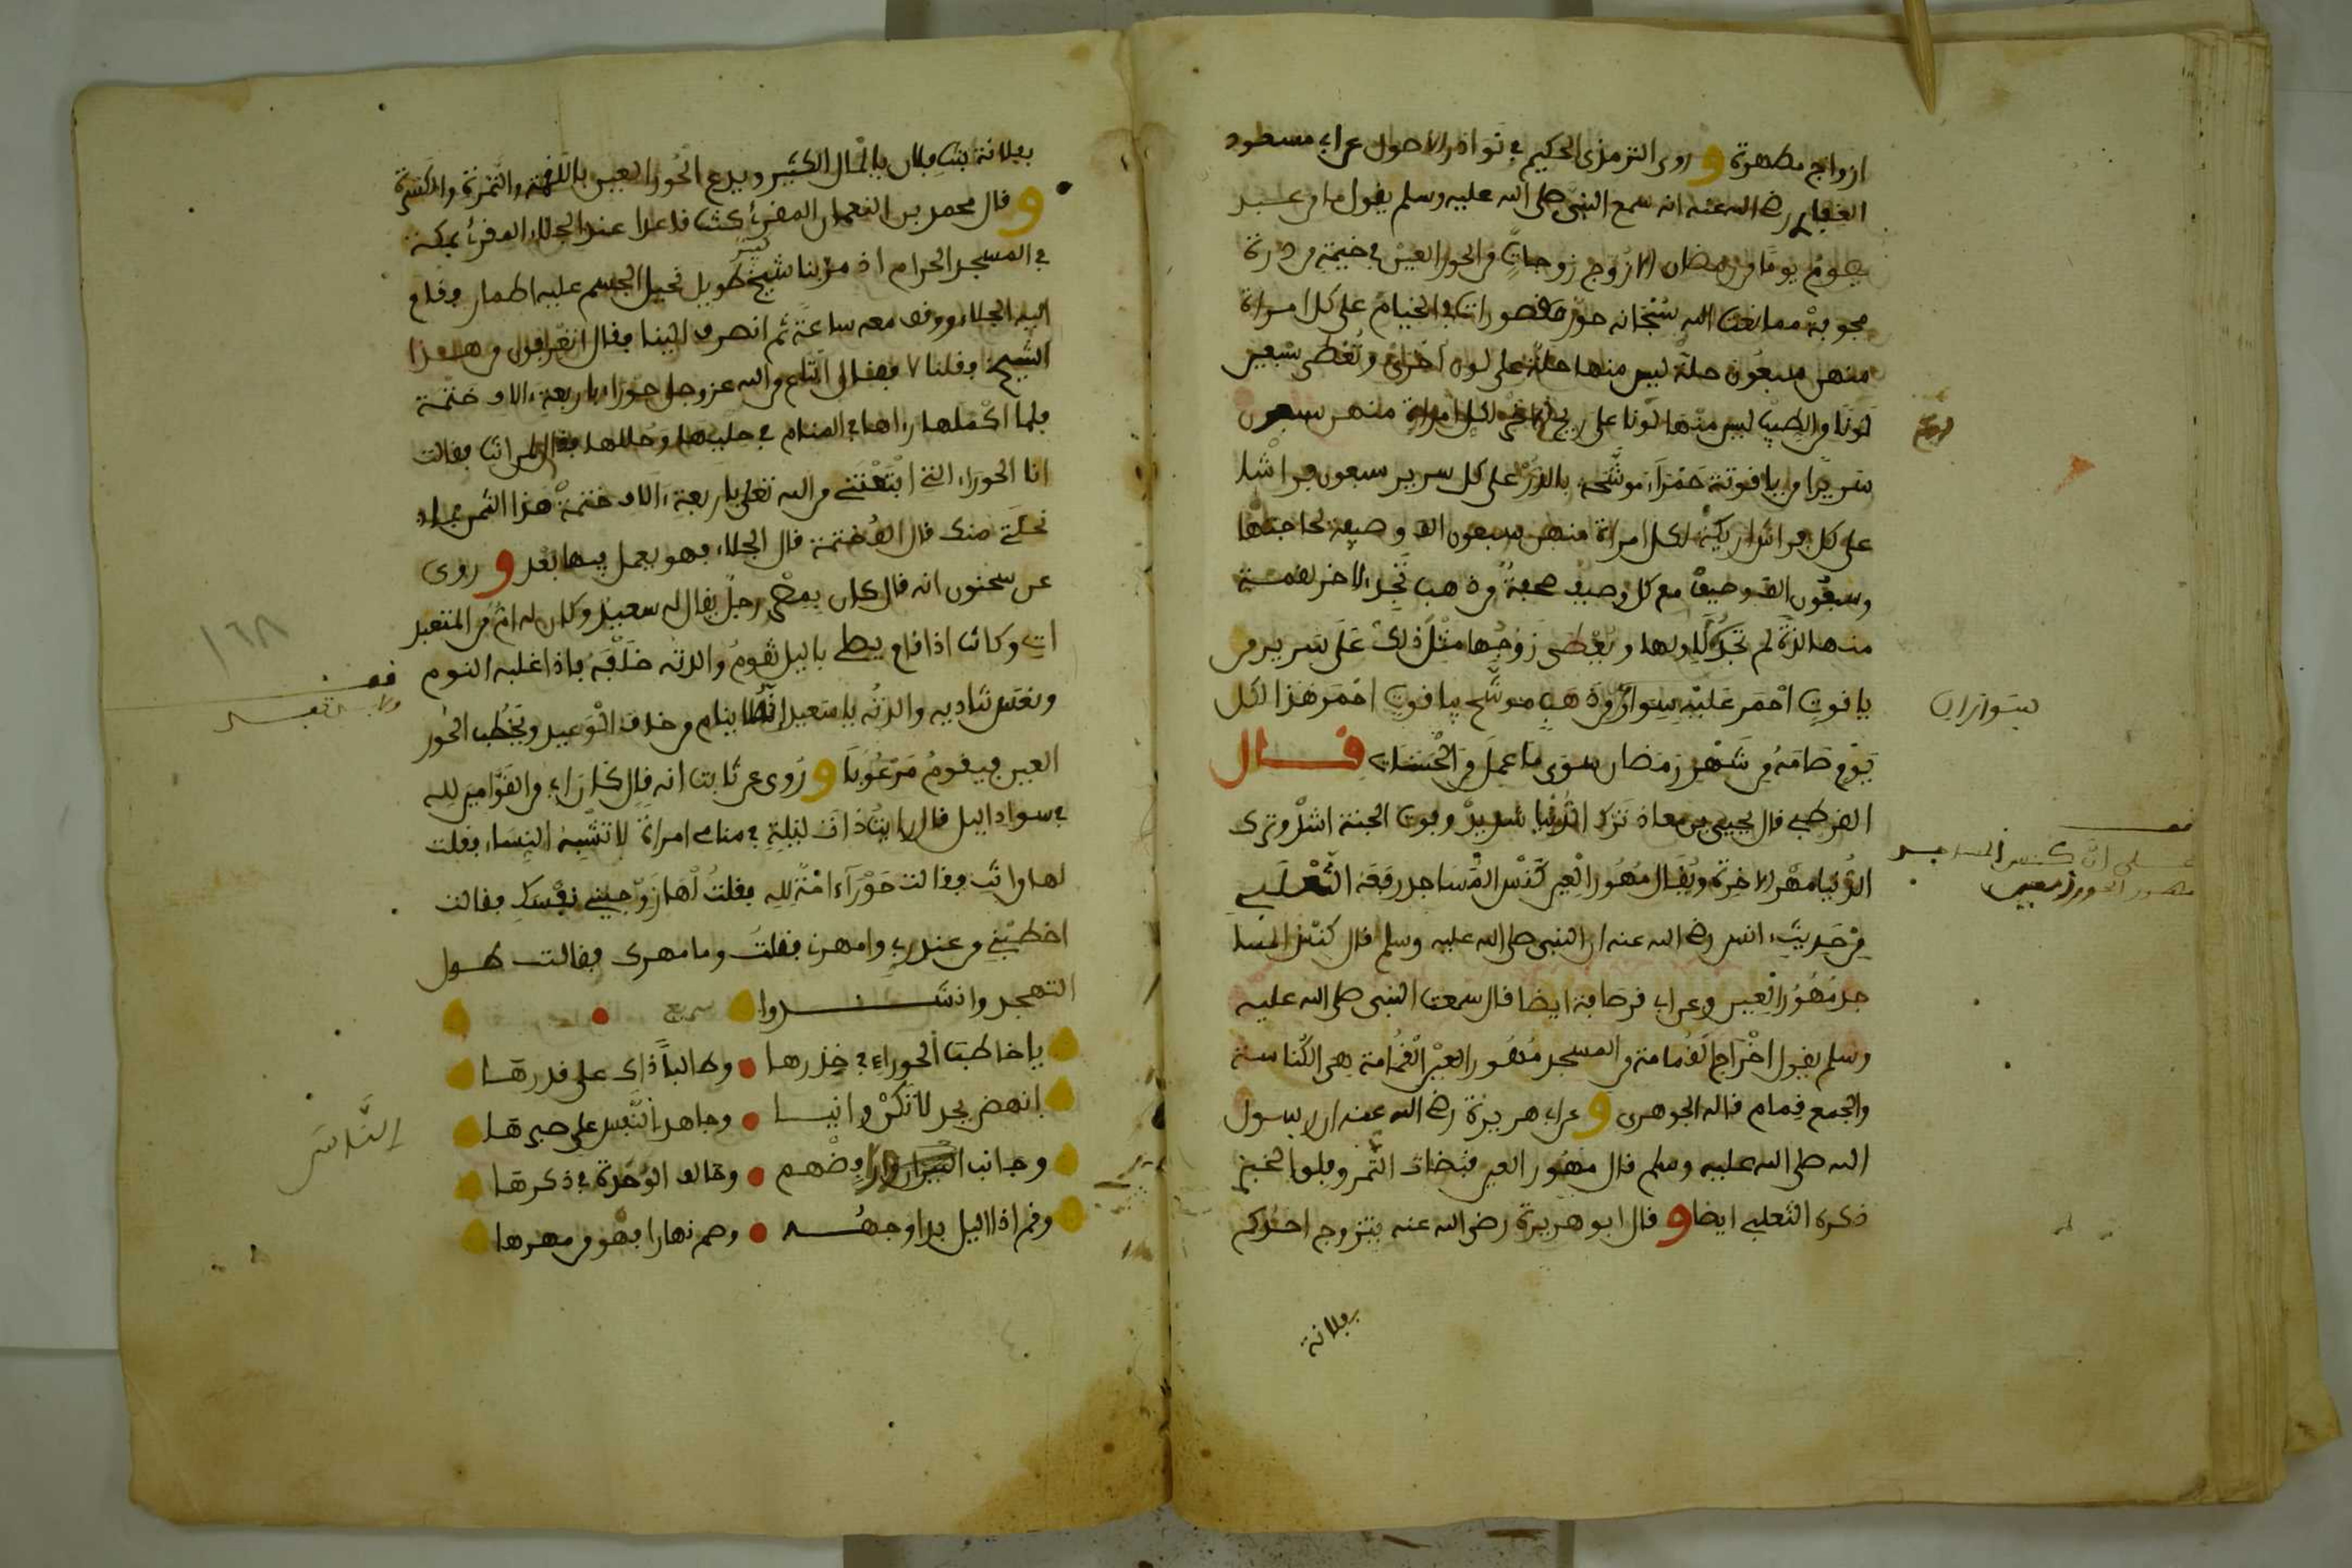 ازواج مطهرة و روى الترمذى الحكيم في نوادر الاصول عن ابي مسعود
الغفاري رضي الله عنه انه سمع النبي صلى الله عليه وسلم يقول ما من عبد
يصوم يوما من رمضان الا زوج زوجات من الحور العين في خيمة من درة
مجوبة مما نعت الله سبحانه حور مقصورات في الخيام على كل امراة
منهن سبعون حلة ليس منها حلة على لون اخرى وتعطى سبعين
لونا من الطيب ليس منها لونا على ريح الاخر لكل امراة منهن سبعون
سريرا من ياقوتة حمراء موشحة بالدر على كل سرير سبعون فراشا
على كل فراش اريكة لكل امراة منهن سبعون الف وصيفة لحاجتها
وسبعون الف وصيف مع كل وصيف صحفة من ذهب تجد لاخر لقمة
منها لذة لم تجد لاولها ويعطى زوجها مثل ذلك على سرير من
ياقوت احمر عليه سواران من ذهب موشح بياقوت احمر هذا لكل
يوم صامه من شهر رمضان سوى ما عمل من الحسنات قال
القرطبي قال يحيى بن معاذ ترك الدنيا شديد وفوت الجنة اشد وترك
الدنيا مهر الاخرة ويقال مهور العين كنس المساجد رفعه الثعلبي
من حديث انس رضي الله عنه ان النبي صلى الله عليه وسلم قال كنس المسا
جد مهور العين وعن ابي قرصافة ايضا قال سمعت النبي صلى الله عليه
وسلم يقول اخراج القمامة من المسجد مهور العين القمامة هي الكناسة
والجمع قمام قاله الجوهري و عن ابي هريرة رضي الله عنه ان رسول
الله صلى الله عليه وسلم قال مهور العين قبضات التمر وفلق الخبز
ذكره الثعلبي ايضا و قال ابو هريرة رضي الله عنه يتزوج احدكم
بفلانة
سواران
على ان كنس المساجد
مهور الحور العين
بفلانة بنت فلان بالمال الكثير ويدع الحور العين باللقمة والتمرة والكسرة
و قال محمد بن النعمان المقرئ كنت قاعدا عند الجلاء المقرئ بمكة
في المسجد الحرام اذ مر بنا شيخ كبير طويل نحيل الجسم عليه اطمار فقام
اليه الجلاء ووقف معه ساعة ثم انصرف الينا فقال اتعرفون من هذا
الشيخ فقلنا لا فقال ابتاع من الله عز وجل حوراء باربعة الاف ختمة
فلما اكملها راها في المنام في حليها وحللها فقال لمن انت فقالت
انا الحوراء التي ابتعتني من الله تعلى باربعة الاف ختمة هذا الثمن فما
نحلتي منك قال الف ختمة قال الجلاء فهو يعمل فيها بعد و روى
عن سحنون انه قال كان بمصر رجل يقال له سعيد وكان له ام من المتعبد
ات وكانت اذا قام يصلي باليل تقوم والدته خلفه فاذا غلبه النوم
ونعس تناديه والدته يا سعيد انه لا ينام من خاف الوعيد ويخطب الحور
العين فيقوم مرعوبا و روى عن ثابت انه قال كان ابي من القوامين لله
في سواد اليل قال رايت ذات ليلة في منامي امراة لا تشبه النساء فقلت
لها من انت فقالت حوراء امة لله فقلت لها زوجيني نفسك فقالت
اخطبني من عند ربي وامهرني فقلت وما مهرك فقالت طول
التهجد وانشدوا سريع
يا خاطب الحوراء في خدرها وطالبا ذاك على قدرها
انهض بجد لا تكن وانيا وجاهد النفس على صبرها
وجانب الناس وارفضهم وحالف الوحدة في ذكرها
وقم اذا اليل بدا وجهه وصم نهارا فهو من مهرها
١٦٨
الناس